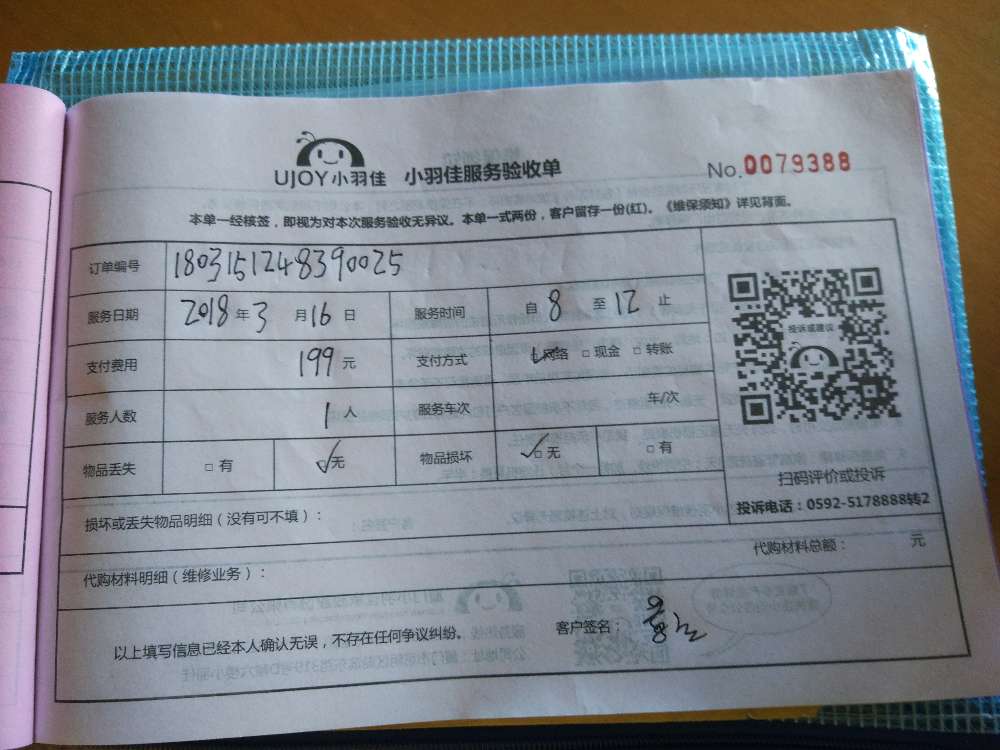 UJOY小羽佳 小羽佳服务验收单 No.0079388
本单一经核签，即视为对本次服务验收无异议。本单一式两份，客户留存一份(红)。《维保须知》详见背面。
订单编号 1803151248390025
服务日期 2018年3月16日 服务时间 自8至12止
支付费用 199元 支付方式 网络 □现金 □转账
服务人数 1人 服务车次 车/次
物品丢失 □有 √无 物品损坏 √□无 □有
投诉或建议
扫码评价或投诉
投诉电话：0592-5178888转2
损坏或丢失物品明细（没有可不填）：
代购材料明细（维修业务）： 代购材料总额： 元
以上填写信息已经本人确认无误，不存在任何争议纠纷。 客户签名：